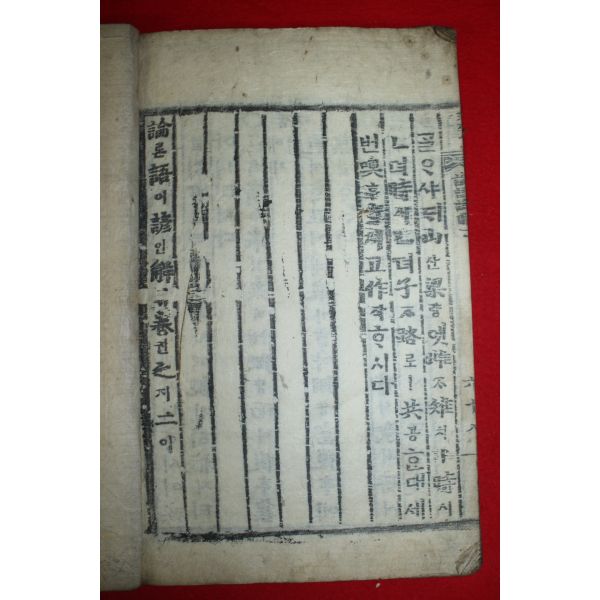 ᄀᆞᆯᄋᆞ샤ᄃᆡ山산梁량엣雌ᄌᆞ雉티時시
ㄴ뎌時시ㄴ뎌子ᄌᆞ路로ㅣ共공ᄒᆞᆫ대세
번嗅후ᄒᆞ시고作작ᄒᆞ시다
論론語어諺언解ᄒᆡ卷권之지二이